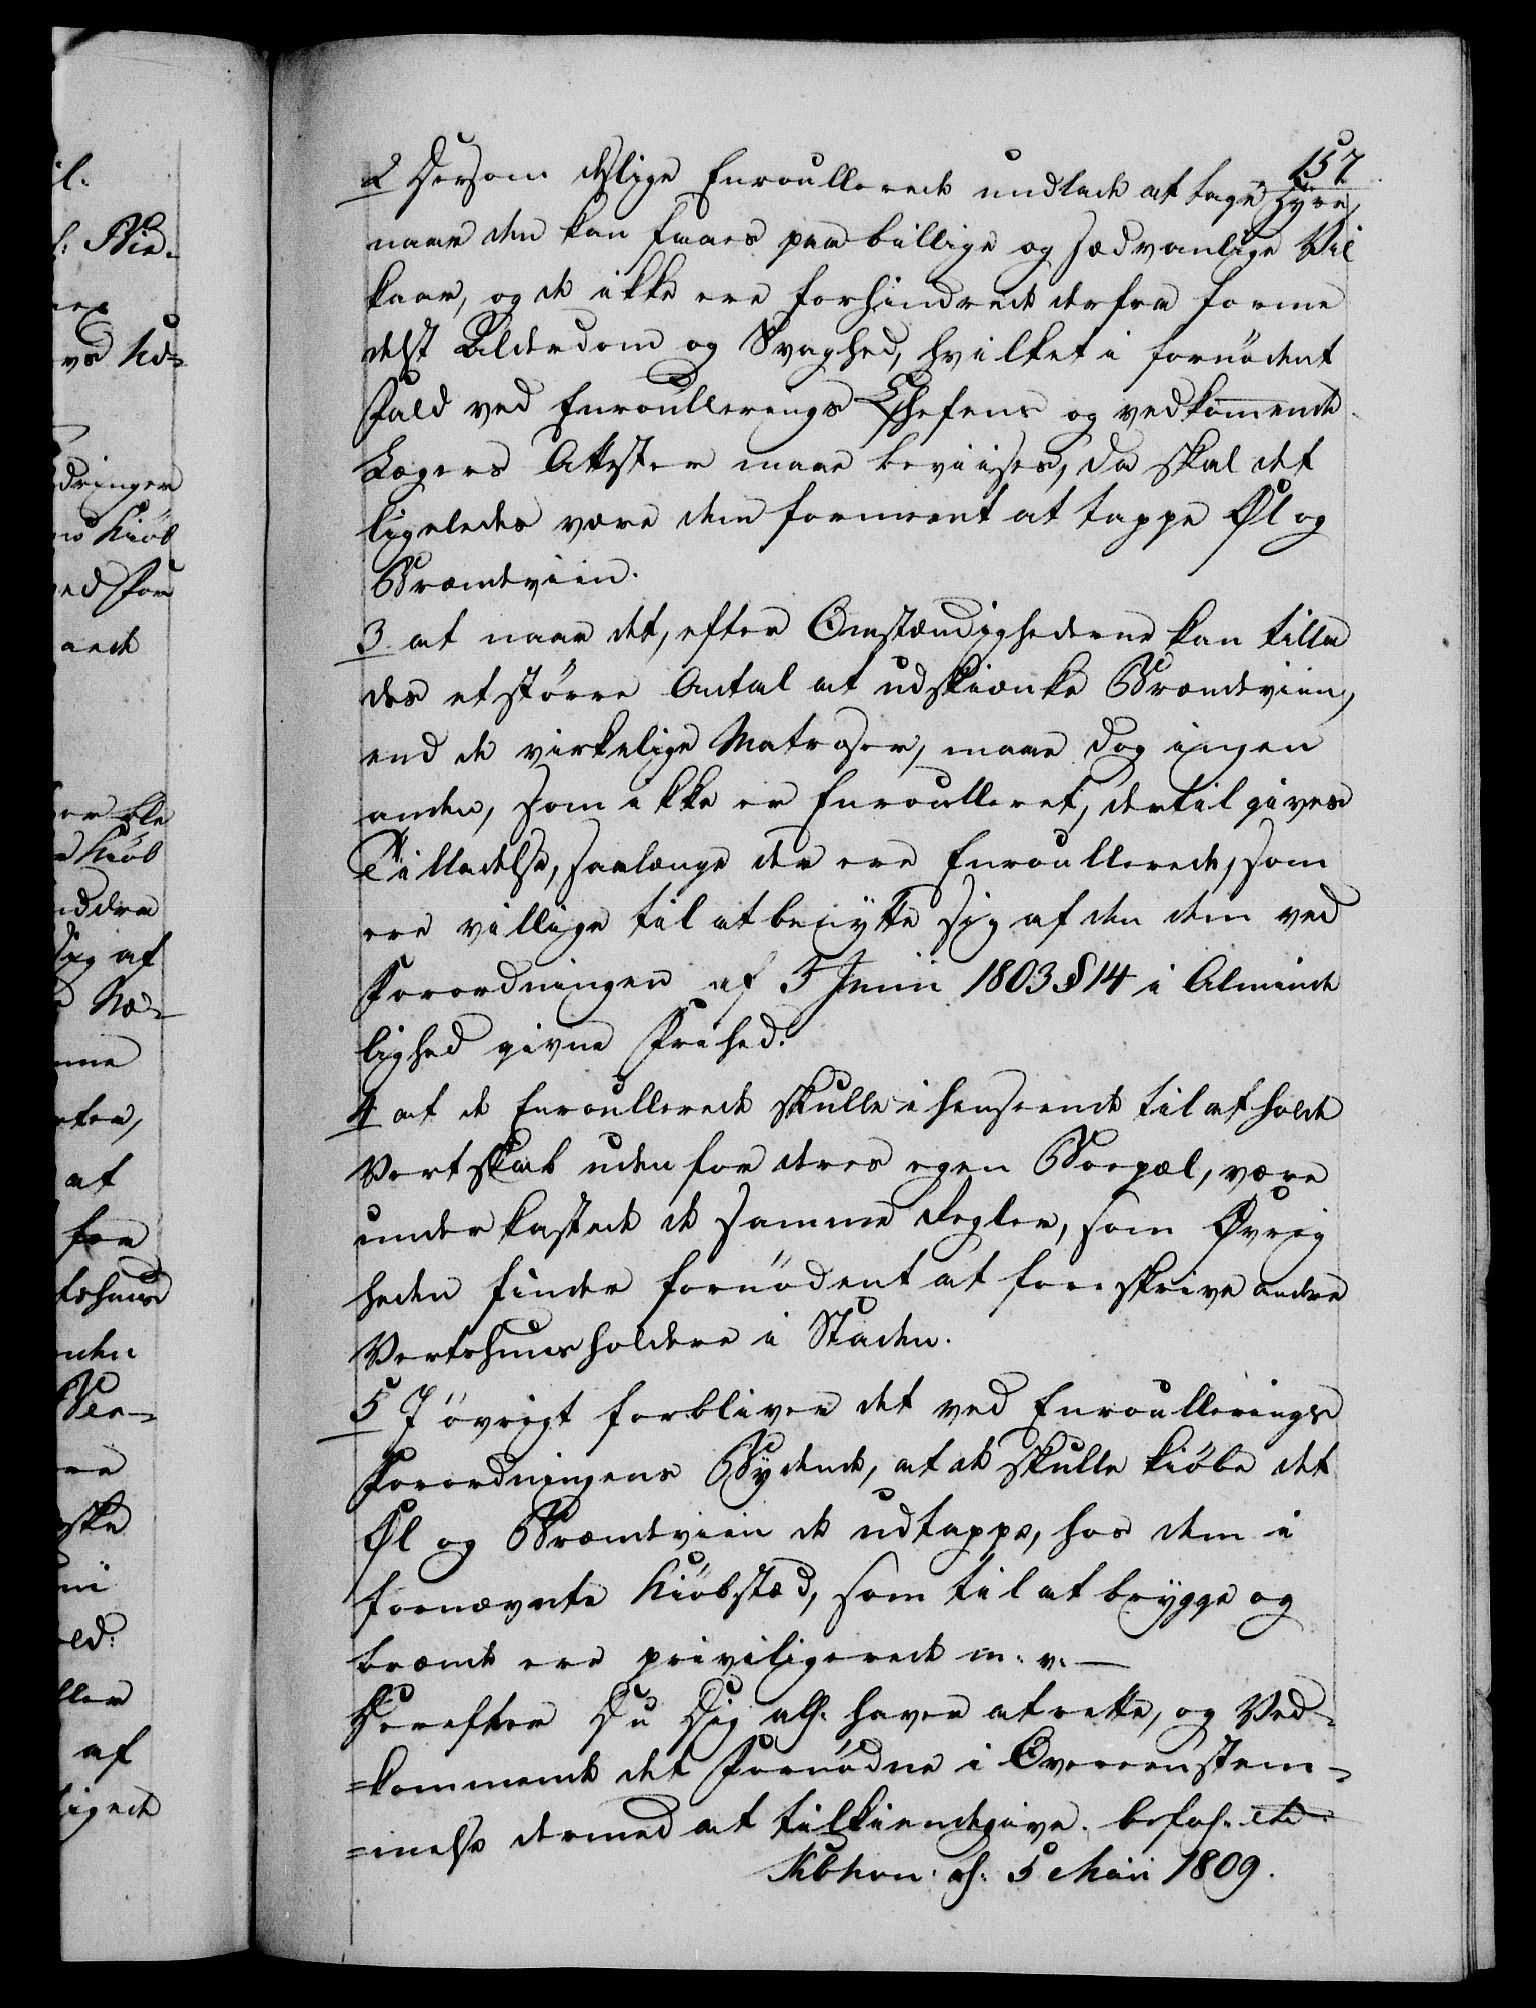 157
2 Dersom deslige Enroullerede undlade at tage Hyre,
naar den kan faaes paa billige og sædvanlige Vil
kaar, og de ikke ere forhindrede derfra forme
delst Alderdom og Svaghed, hvilket i fornödent
Fald ved Enroullerings Chefens og vedkommende
Lægers Attester maae beviises, da skal det
ligeledes være dem forment at tappe Øl og
Brændeviin.
3 at naar det, efter Omstændighederne kan tilla
des et större Antal at udskiænke Brændeviin,
end de virkelige Matroser, maae dog ingen
anden, som ikke er Enroulleret, dertil gives
Tilladelse, saalænge der ere Enroullerede, som
ere villige til at benytte sig af den dem ved
Forordningen af 5 Junii 1803 § 14 i Alminde
lighed givne Frihed.
4 at de Enroullerede skulle i henseende til at holde
Vertskab uden for deres egen Boepæl, være
underkastede de samme Regler, som Øvrig
heden finder fornödent at foreskrive andre
Vertshuusholdere i Staden.
5 I övrigt forbliver det ved Enroullerings
Forordningens Bydende, at de skulle kiöbe det
Øl og Brændeviin de udtappe, hos dem i
fornævnte Kiöbstæd, som til at brygge og
brænde ere priviligerede m. v. —
Derefter Du Dig alh. haver at rette, og Ved-
=kommende det Fornödne i Overeenstem-
=melse dermed at tilkiendegive. befal. etc.
Kbhvn. d. 5 Maii 1809.